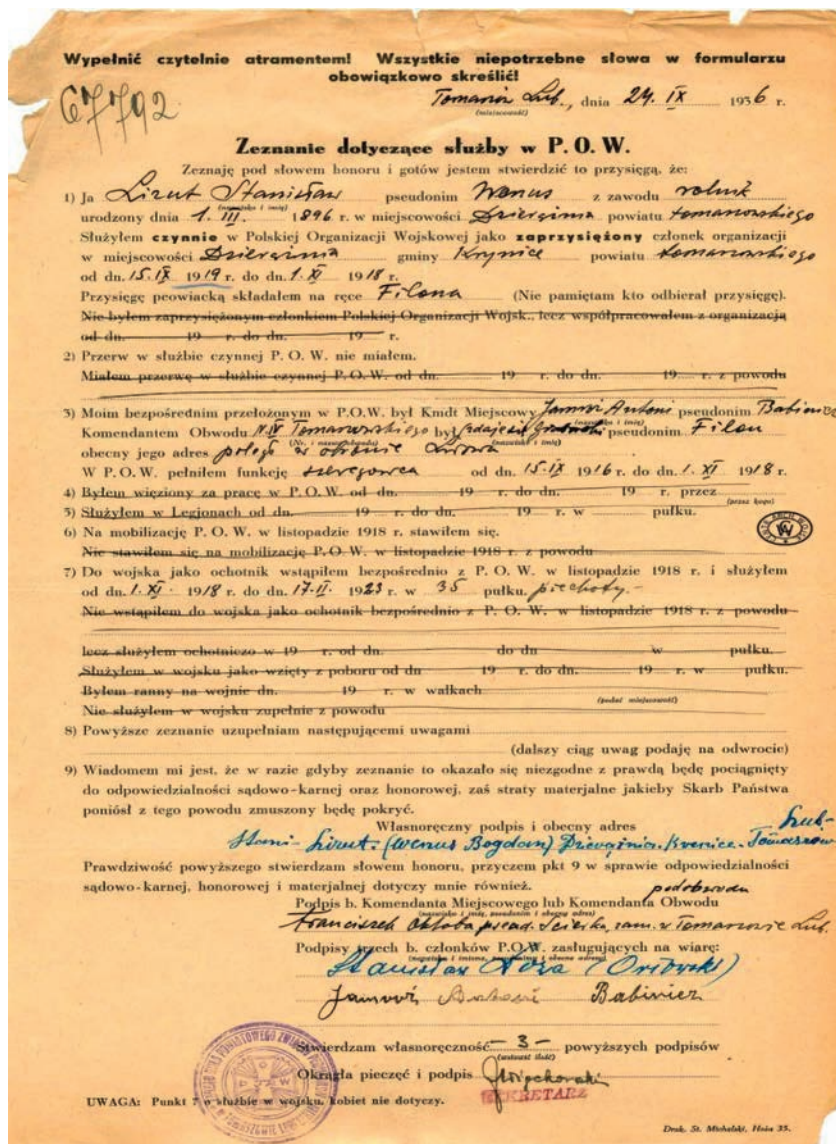 Wypełnić czytelnie atramentem! Wszystkie niepotrzebne słowa w formularzu
obowiązkowo skreślić!
67792
Tomaszów Lub., dnia 24. IX 1936 r.
(miejscowość)
Zeznanie dotyczące służby w P. O. W.
Zeznaję pod słowem honoru i gotów jestem stwierdzić to przysięgą, że:
1) Ja Lizut Stanisław pseudonim Wenus z zawodu rolnik
(nazwisko i imię)
urodzony dnia 1. III. 1896 r. w miejscowości Dzierążnia powiatu tomaszowskiego
Służyłem czynnie w Polskiej Organizacji Wojskowej jako zaprzysiężony członek organizacji
w miejscowości Dzierążnia gminy Krynice powiatu tomaszowskiego
od dn. 15. IX 1919 r. do dn. 1. XI 1918 r.
Przysięgę peowiacką składałem na ręce Filona (Nie pamiętam kto odbierał przysięgę).
Nie byłem zaprzysiężonym członkiem Polskiej Organizacji Wojsk., lecz współpracowałem z organizacją
od dn. 19 r. do dn. 19 r.
2) Przerw w służbie czynnej P. O. W. nie miałem.
Miałem przerwę w służbie czynnej P. O. W. od dn. 19 r. do dn. 19 r. z powodu
3) Moim bezpośrednim przełożonym w P.O.W. był Kmdt Miejscowy Antoni pseudonim Babinicz
(nazwisko i imię)
Komendantem Obwodu Tomaszowskiego był pseudonim Filon
(Nr. i nazwa obwodu) (nazwisko i imię)
obecny jego adres poległ w obronie Lwowa
W P.O.W. pełniłem funkcję szeregowca od dn. 15. IX 1916 r. do dn. 1. XI 1918 r.
4) Byłem więziony za pracę w P.O.W. od dn. 19 r. do dn. 19 r. przez
(przez kogo)
5) Służyłem w Legjonach od dn. 19 r. do dn. 19 r. w pułku.
6) Na mobilizację P.O.W. w listopadzie 1918 r. stawiłem się.
Nie stawiłem się na mobilizację P.O.W. w listopadzie 1918 r. z powodu
7) Do wojska jako ochotnik wstąpiłem bezpośrednio z P. O. W. w listopadzie 1918 r. i służyłem
od dn. 1. XI. 1918 r. do dn. 17. II. 1923 r. w 35 pułku. piechoty.-
Nie wstąpiłem do wojska jako ochotnik bezpośrednio z P. O. W. w listopadzie 1918 r. z powodu
lecz służyłem ochotniczo w 19 r. od dn. do dn w pułku.
Służyłem w wojsku jako wzięty z poboru od dn 19 r. do dn. 19 r. w pułku.
Byłem ranny na wojnie dn. 19 r. w walkach
(podać miejscowość)
Nie służyłem w wojsku zupełnie z powodu
8) Powyższe zeznanie uzupełniam następującemi uwagami
(dalszy ciąg uwag podaję na odwrocie)
9) Wiadomem mi jest, że w razie gdyby zeznanie to okazało się niezgodne z prawdą będę pociągnięty
do odpowiedzialności sądowo-karnej oraz honorowej, zaś straty materjalne jakieby Skarb Państwa
poniósł z tego powodu zmuszony będę pokryć.
Własnoręczny podpis i obecny adres
Stani- Lizut. (Wenus Bogdan) Dzierążnia. Krynice. Tomaszów Lub-
Prawdziwość powyższego stwierdzam słowem honoru, przyczem pkt 9 w sprawie odpowiedzialności
sądowo-karnej, honorowej i materjalnej dotyczy mnie również.
podobwodu
Podpis b. Komendanta Miejscowego lub Komendanta Obwodu
(nazwisko i imię, pseudonim i obecny adres)
Franciszek pseud. Ścierka, zam. w Tomaszowie Lub.
Podpisy trzech b. członków P.O.W. zasługujących na wiarę:
(nazwiska i imiona, pseudonimy i obecne adresy)
Stanisław Róża (Orłowski)
Antoni Babinicz
Stwierdzam własnoręczność - 3 - powyższych podpisów
Okrągła pieczęć i podpis
SEKRETARZ
UWAGA: Punkt 7 o służbie w wojsku, kobiet nie dotyczy.
Druk. St. Michalski, Hoża 35.